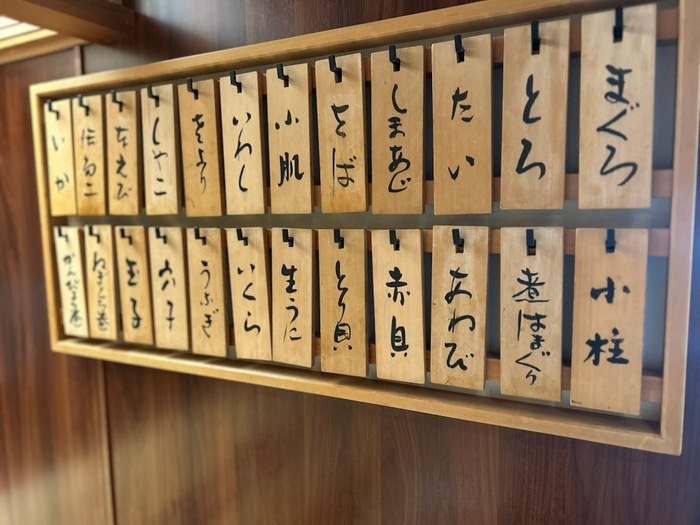 まぐろ
とろ
たい
しまあじ
さば
小肌
いわし
さより
しゃこ
いか
小柱
煮はまぐり
あわび
赤貝
とり貝
生うに
いくら
うなぎ
穴子
玉子
ねぎとろ巻
かんぴょう巻